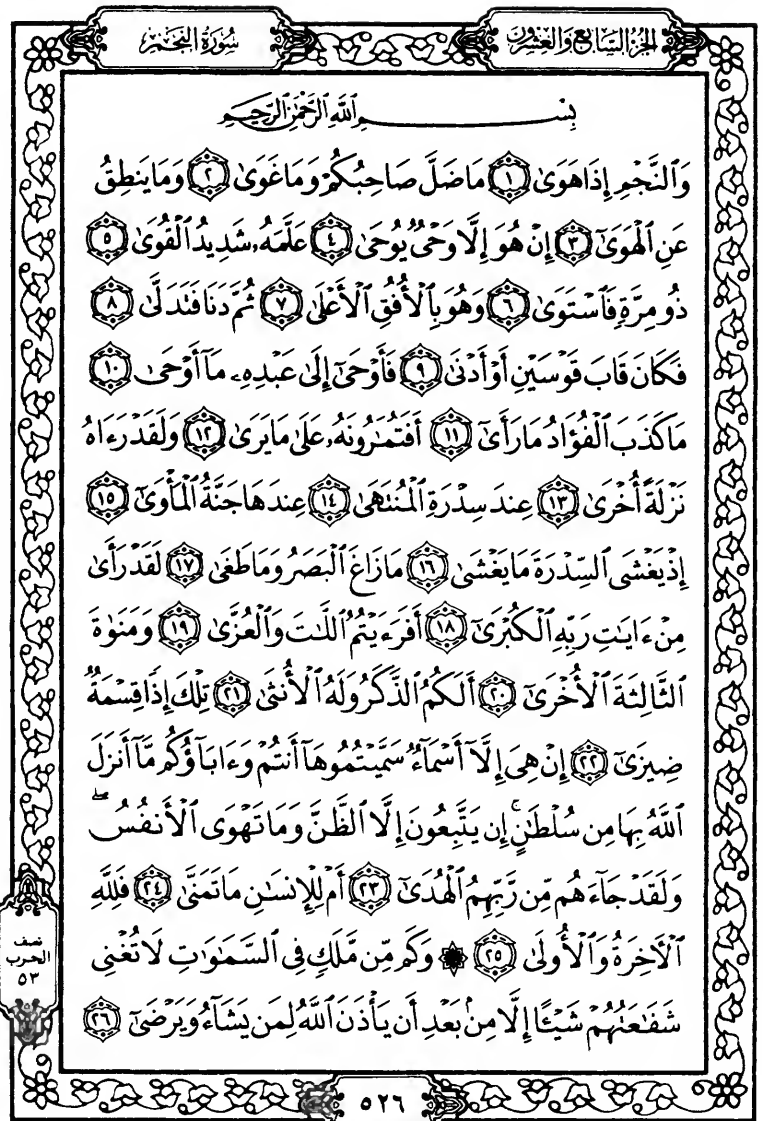 الجُزْءُ السَّابِعُ وَالعِشْرُونَ
سُورَةُ النَّجْمِ
بِسْمِ ٱللَّهِ ٱلرَّحْمَٰنِ ٱلرَّحِيمِ
وَٱلنَّجْمِ إِذَا هَوَىٰ ١ مَا ضَلَّ صَاحِبُكُمْ وَمَا غَوَىٰ ٢ وَمَا يَنطِقُ
عَنِ ٱلْهَوَىٰٓ ٣ إِنْ هُوَ إِلَّا وَحْىٌ يُوحَىٰ ٤ عَلَّمَهُۥ شَدِيدُ ٱلْقُوَىٰ ٥
ذُو مِرَّةٍ فَٱسْتَوَىٰ ٦ وَهُوَ بِٱلْأُفُقِ ٱلْأَعْلَىٰ ٧ ثُمَّ دَنَا فَتَدَلَّىٰ ٨
فَكَانَ قَابَ قَوْسَيْنِ أَوْ أَدْنَىٰ ٩ فَأَوْحَىٰٓ إِلَىٰ عَبْدِهِۦ مَآ أَوْحَىٰ ١٠
مَا كَذَبَ ٱلْفُؤَادُ مَا رَأَىٰٓ ١١ أَفَتُمَٰرُونَهُۥ عَلَىٰ مَا يَرَىٰ ١٢ وَلَقَدْ رَءَاهُ
نَزْلَةً أُخْرَىٰ ١٣ عِندَ سِدْرَةِ ٱلْمُنتَهَىٰ ١٤ عِندَهَا جَنَّةُ ٱلْمَأْوَىٰٓ ١٥
إِذْ يَغْشَى ٱلسِّدْرَةَ مَا يَغْشَىٰ ١٦ مَا زَاغَ ٱلْبَصَرُ وَمَا طَغَىٰ ١٧ لَقَدْ رَأَىٰ
مِنْ ءَايَٰتِ رَبِّهِ ٱلْكُبْرَىٰٓ ١٨ أَفَرَءَيْتُمُ ٱللَّٰتَ وَٱلْعُزَّىٰ ١٩ وَمَنَوٰةَ
ٱلثَّالِثَةَ ٱلْأُخْرَىٰٓ ٢٠ أَلَكُمُ ٱلذَّكَرُ وَلَهُ ٱلْأُنثَىٰ ٢١ تِلْكَ إِذًا قِسْمَةٌ
ضِيزَىٰٓ ٢٢ إِنْ هِىَ إِلَّآ أَسْمَآءٌ سَمَّيْتُمُوهَآ أَنتُمْ وَءَابَآؤُكُم مَّآ أَنزَلَ
ٱللَّهُ بِهَا مِن سُلْطَٰنٍ ۚ إِن يَتَّبِعُونَ إِلَّا ٱلظَّنَّ وَمَا تَهْوَى ٱلْأَنفُسُ ۖ
وَلَقَدْ جَآءَهُم مِّن رَّبِّهِمُ ٱلْهُدَىٰٓ ٢٣ أَمْ لِلْإِنسَٰنِ مَا تَمَنَّىٰ ٢٤ فَلِلَّهِ
ٱلْءَاخِرَةُ وَٱلْأُولَىٰ ٢٥ ۞ وَكَم مِّن مَّلَكٍ فِى ٱلسَّمَٰوَٰتِ لَا تُغْنِى
شَفَٰعَتُهُمْ شَيْـًٔا إِلَّا مِنۢ بَعْدِ أَن يَأْذَنَ ٱللَّهُ لِمَن يَشَآءُ وَيَرْضَىٰٓ ٢٦
نصف
الحزب
٥٣
٥٢٦